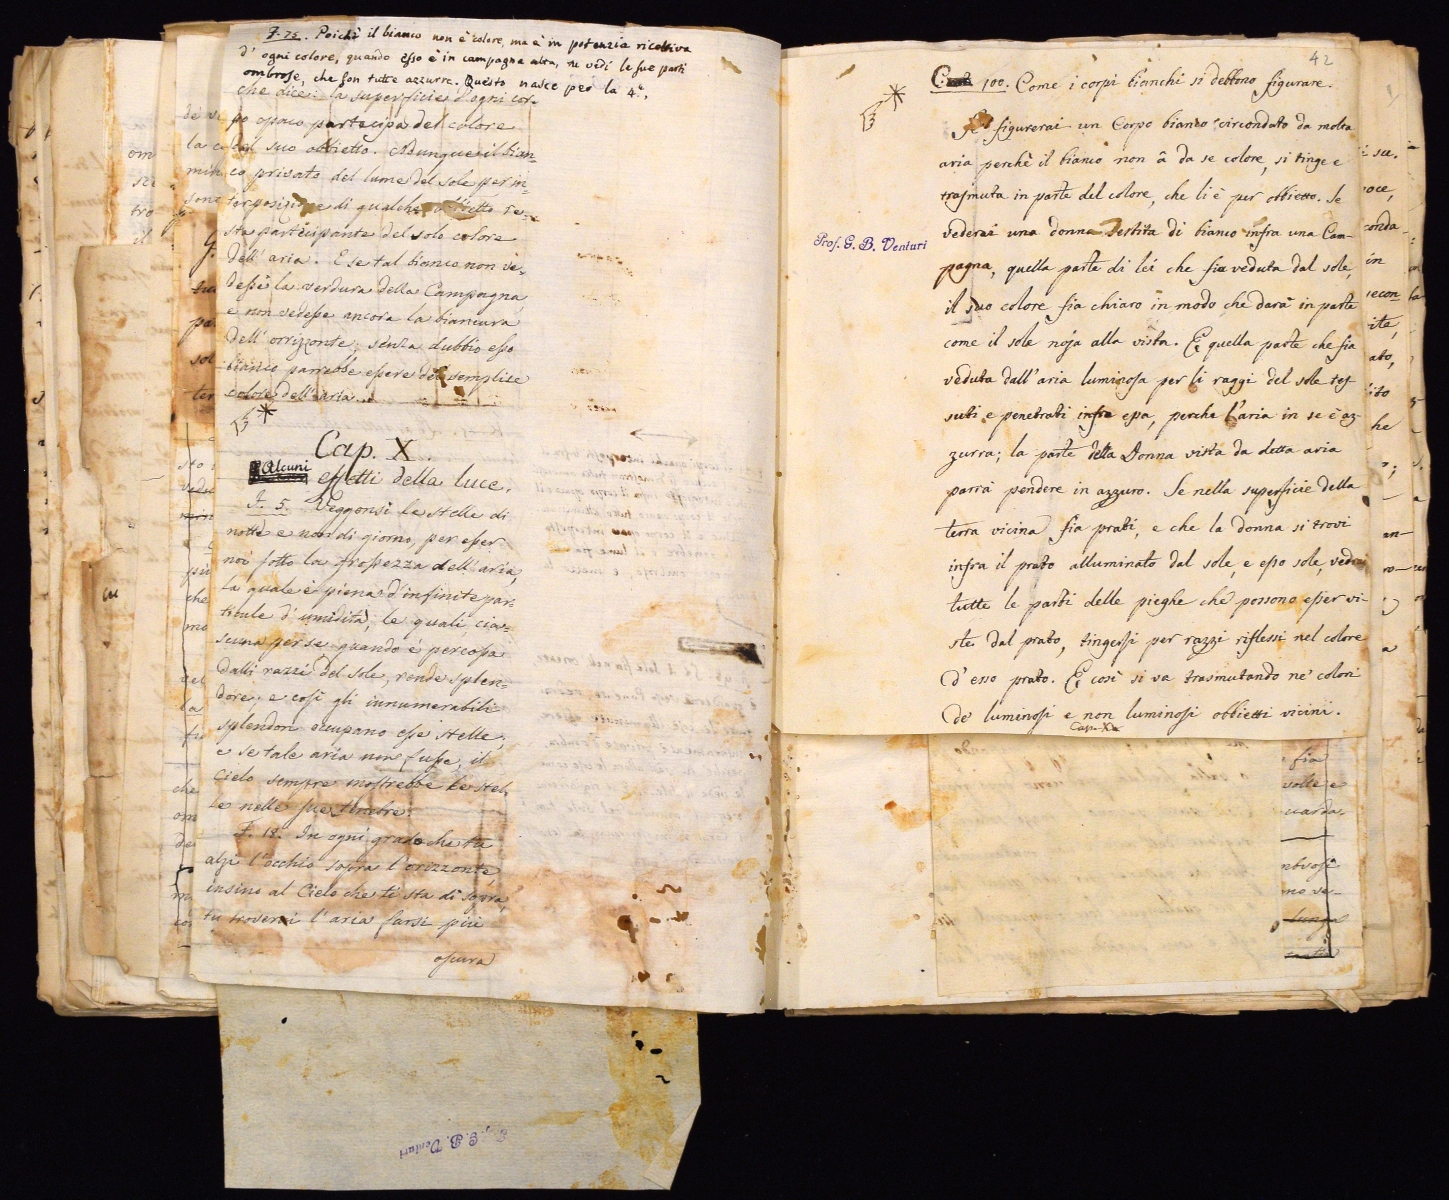 F. 75. Poichè il bianco non è colore, ma è in potenzia ricettiva
d' ogni colore, quando esso è in campagna alta, tu vedi le sue parti
ombrose, che son tutte azzurre. Questo nasce per la 4ª,
che dice: la superficie d'ogni cor-
po opaco partecipa del colore
del suo obbietto. Adunque il bian-
co privato del lume del sole per in-
terposizione di qualche obbietto re-
sta participante del solo colore
dell' aria. E se tal bianco non ve-
desse la verdura della Campagna
e non vedesse ancora la biancura
dell' orrizzonte; senza dubbio esso
bianco parrebbe essere del semplice
colore dell' aria.
Cap. X.
Alcuni effetti della luce.
F. 5. Veggonsi le stelle di
notte e non di giorno, per esser
noi sotto la grossezza dell' aria,
la quale è piena d'infinite par-
ticule d' umidità, le quali cia-
scuna per se quando è percossa
dalli razzi del sole, rende splen-
dore; e così gli innumerabili
splendori occupano esse stelle,
e se tale aria non fusse, il
Cielo sempre mostrebbe le stel-
le nelle sue tenebre.
F. 18. In ogni grado che tu
alzi l'occhio sopra l'orizzonte
insino al Cielo che ti sta di sopra,
tu troverai l'aria farsi più
oscura
G. B. Venturi
42
100. Come i corpi bianchi si debbono figurare.
Se figurerai un Corpo bianco circondato da molta
aria perchè il bianco non à da se colore, si tinge e
trasmuta in parte del colore, che li è per obbietto. Se
vederai una donna vestita di bianco infra una Cam-
pagna, quella parte di lei che fia veduta dal sole,
il suo colore fia chiaro in modo che darà in parte
come il sole noja alla vista. E quella parte che fia
veduta dall'aria luminosa per li raggi del sole tes
suti e penetrati infra essa, perche l'aria in se è az-
zurra; la parte della Donna vista da detta aria
parrà pendere in azzuro. Se nella superficie della
terra vicina fia prati, e che la donna si trovi
infra il prato alluminato dal sole, e esso sole, vedrai
tutte le parti delle pieghe che possono esser vi-
ste dal prato, tingersi per razzi riflessi nel colore
d' esso prato. E così si va trasmutando ne' colori
de' luminosi e non luminosi obbietti vicini.
Cap. X
Prof. G. B. Venturi